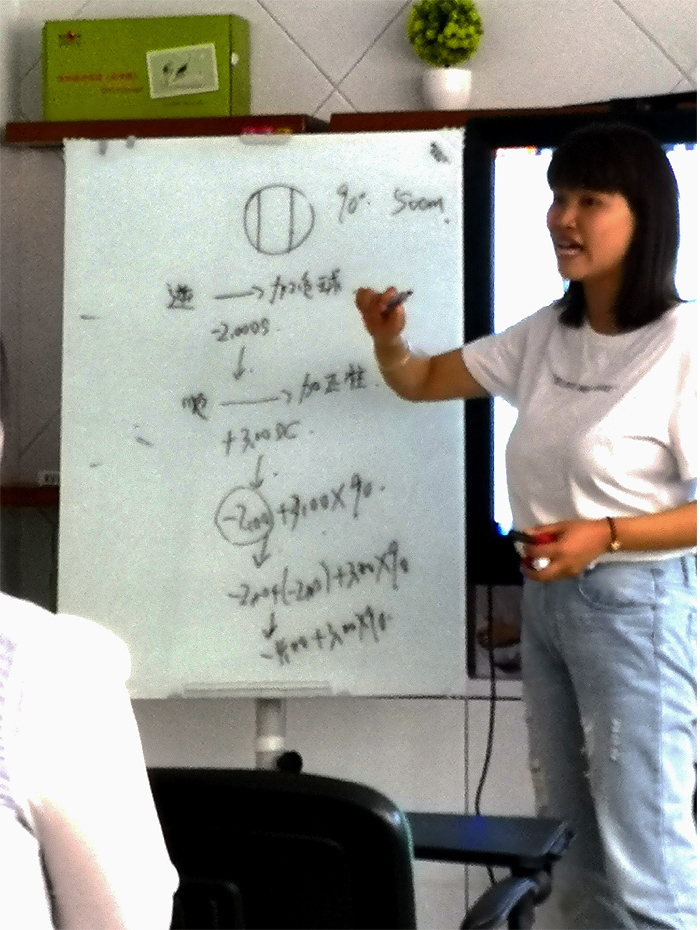 90. 50cm.
逆 → 加负球
-2.00DS.
↓
顺 → 加正柱.
+3.00DC.
↓
-2.00 +3.00×90.
↓
-2.00+(-2.00)+3.00×90
↓
-4.00+3.00×90.